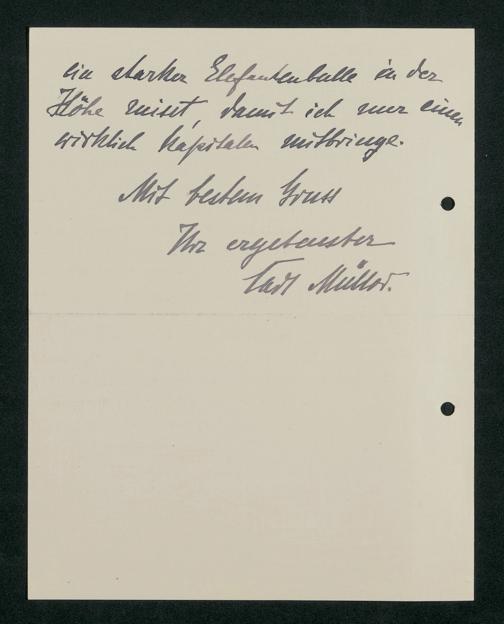 ein starker Elefantenbulle in der
Höhe misst, damit ich nur einen
wirklich kapitalen mitbringe.
Mit bestem Gruss
Ihr ergebenster
Müller.